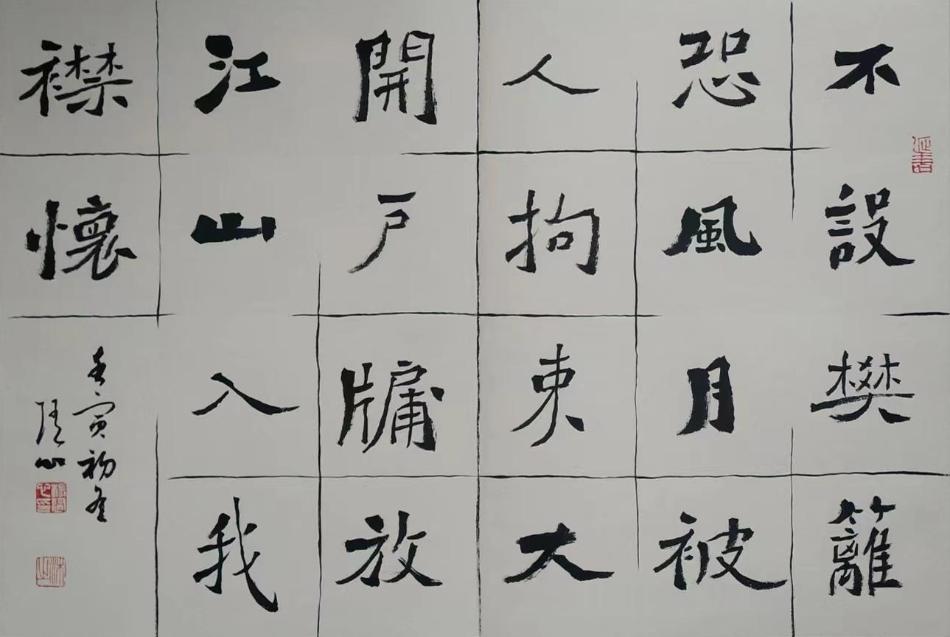 不設樊籬
恐風月被
人拘束大
開户牖放
江山入我
襟懷
壬寅初冬